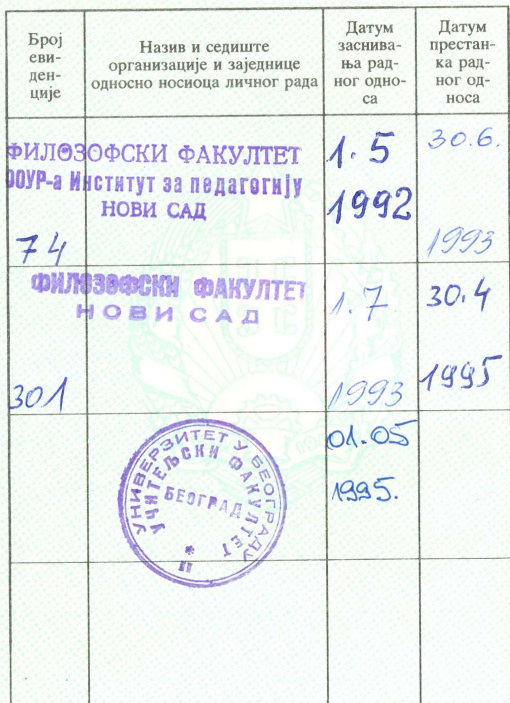 Број
еви-
ден-
ције
Назив и седиште
организације и заједнице
односно носиоца личног рада
Датум
заснива-
ња рад-
ног одно-
са
Датум
престан-
ка рад-
ног од-
носа
ФИЛОЗОФСКИ ФАКУЛТЕТ
ООУР-а Институт за педагогију
НОВИ САД
74
1.5
1992
30.6.
1993
ФИЛОЗОФСКИ ФАКУЛТЕТ
НОВИ САД
301
1.7
1993
30.4
1995
УНИВЕРЗИТЕТ У БЕОГРАДУ
УЧИТЕЉСКИ ФАКУЛТЕТ
БЕОГРАД
01.05
1995.